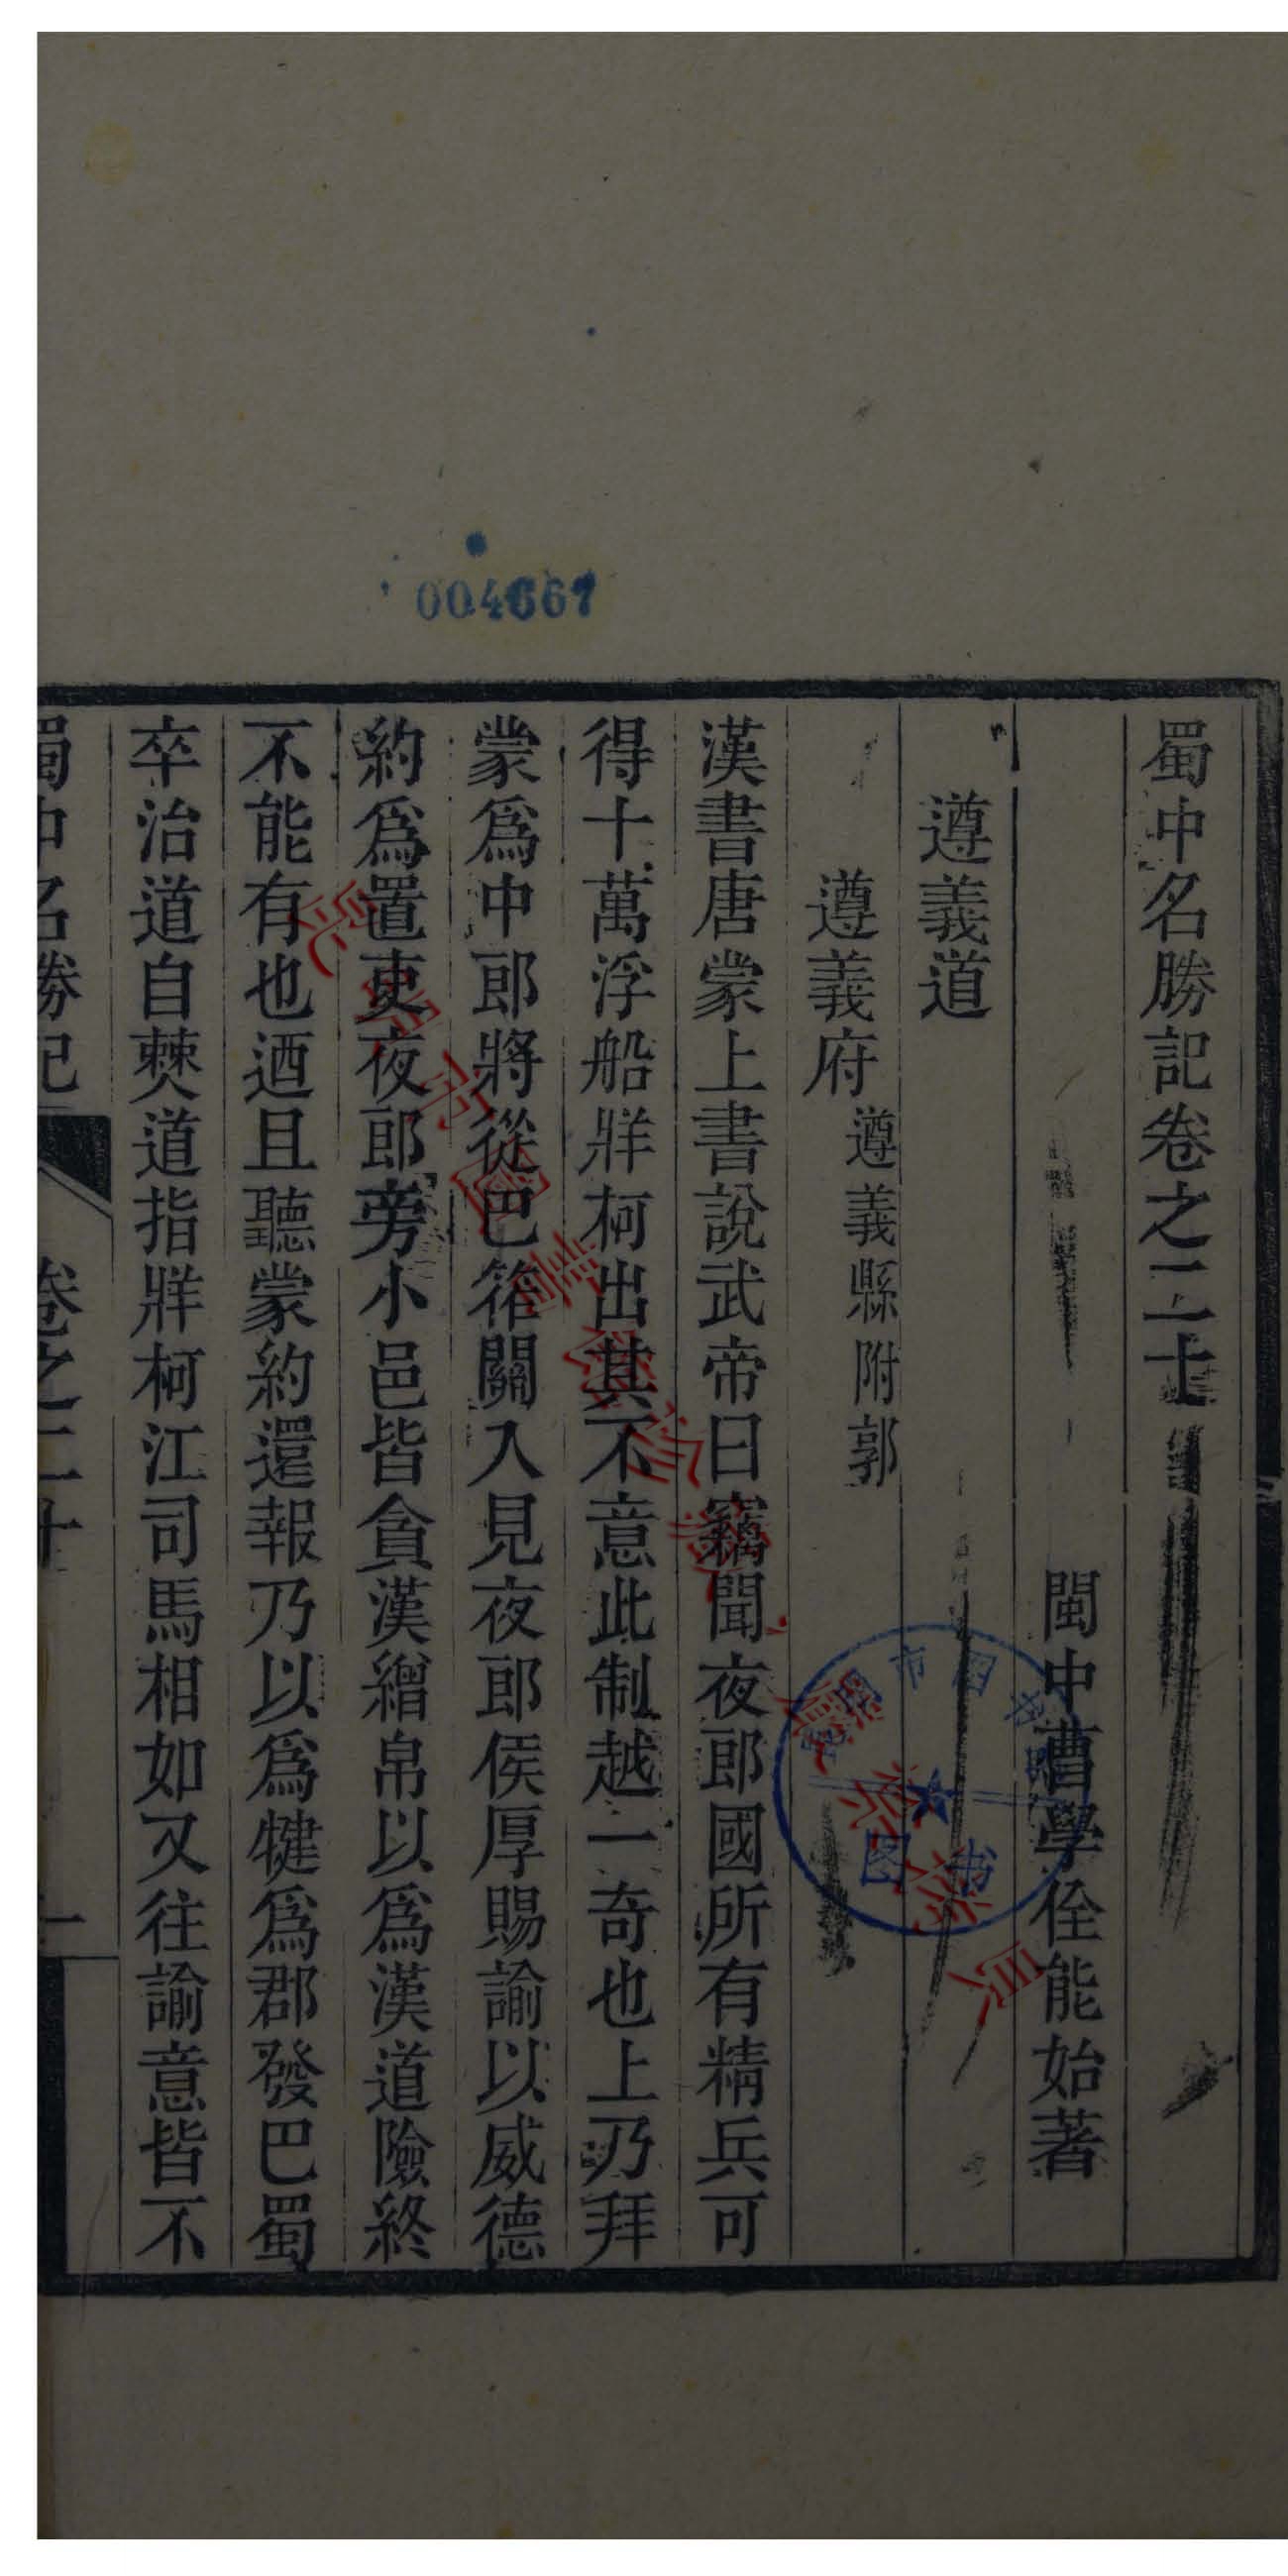 蜀中名勝記卷之二十
閩中曹學佺能始著
遵義道
遵義府 遵義縣附郭
漢書唐蒙上書說武帝曰竊聞夜郎國所有精兵可
得十萬浮船牂柯出其不意此制越一奇也上乃拜
蒙爲中郎將從巴筰關入見夜郎侯厚賜諭以威德
約爲置吏夜郎旁小邑皆貪漢繒帛以爲漢道險終
不能有也迺且聽蒙約還報乃以爲犍爲郡發巴蜀
卒治道自僰道指牂柯江司馬相如又往諭意皆不
蜀中名勝記 卷之二十 一
004667
昆明市图书馆
图书